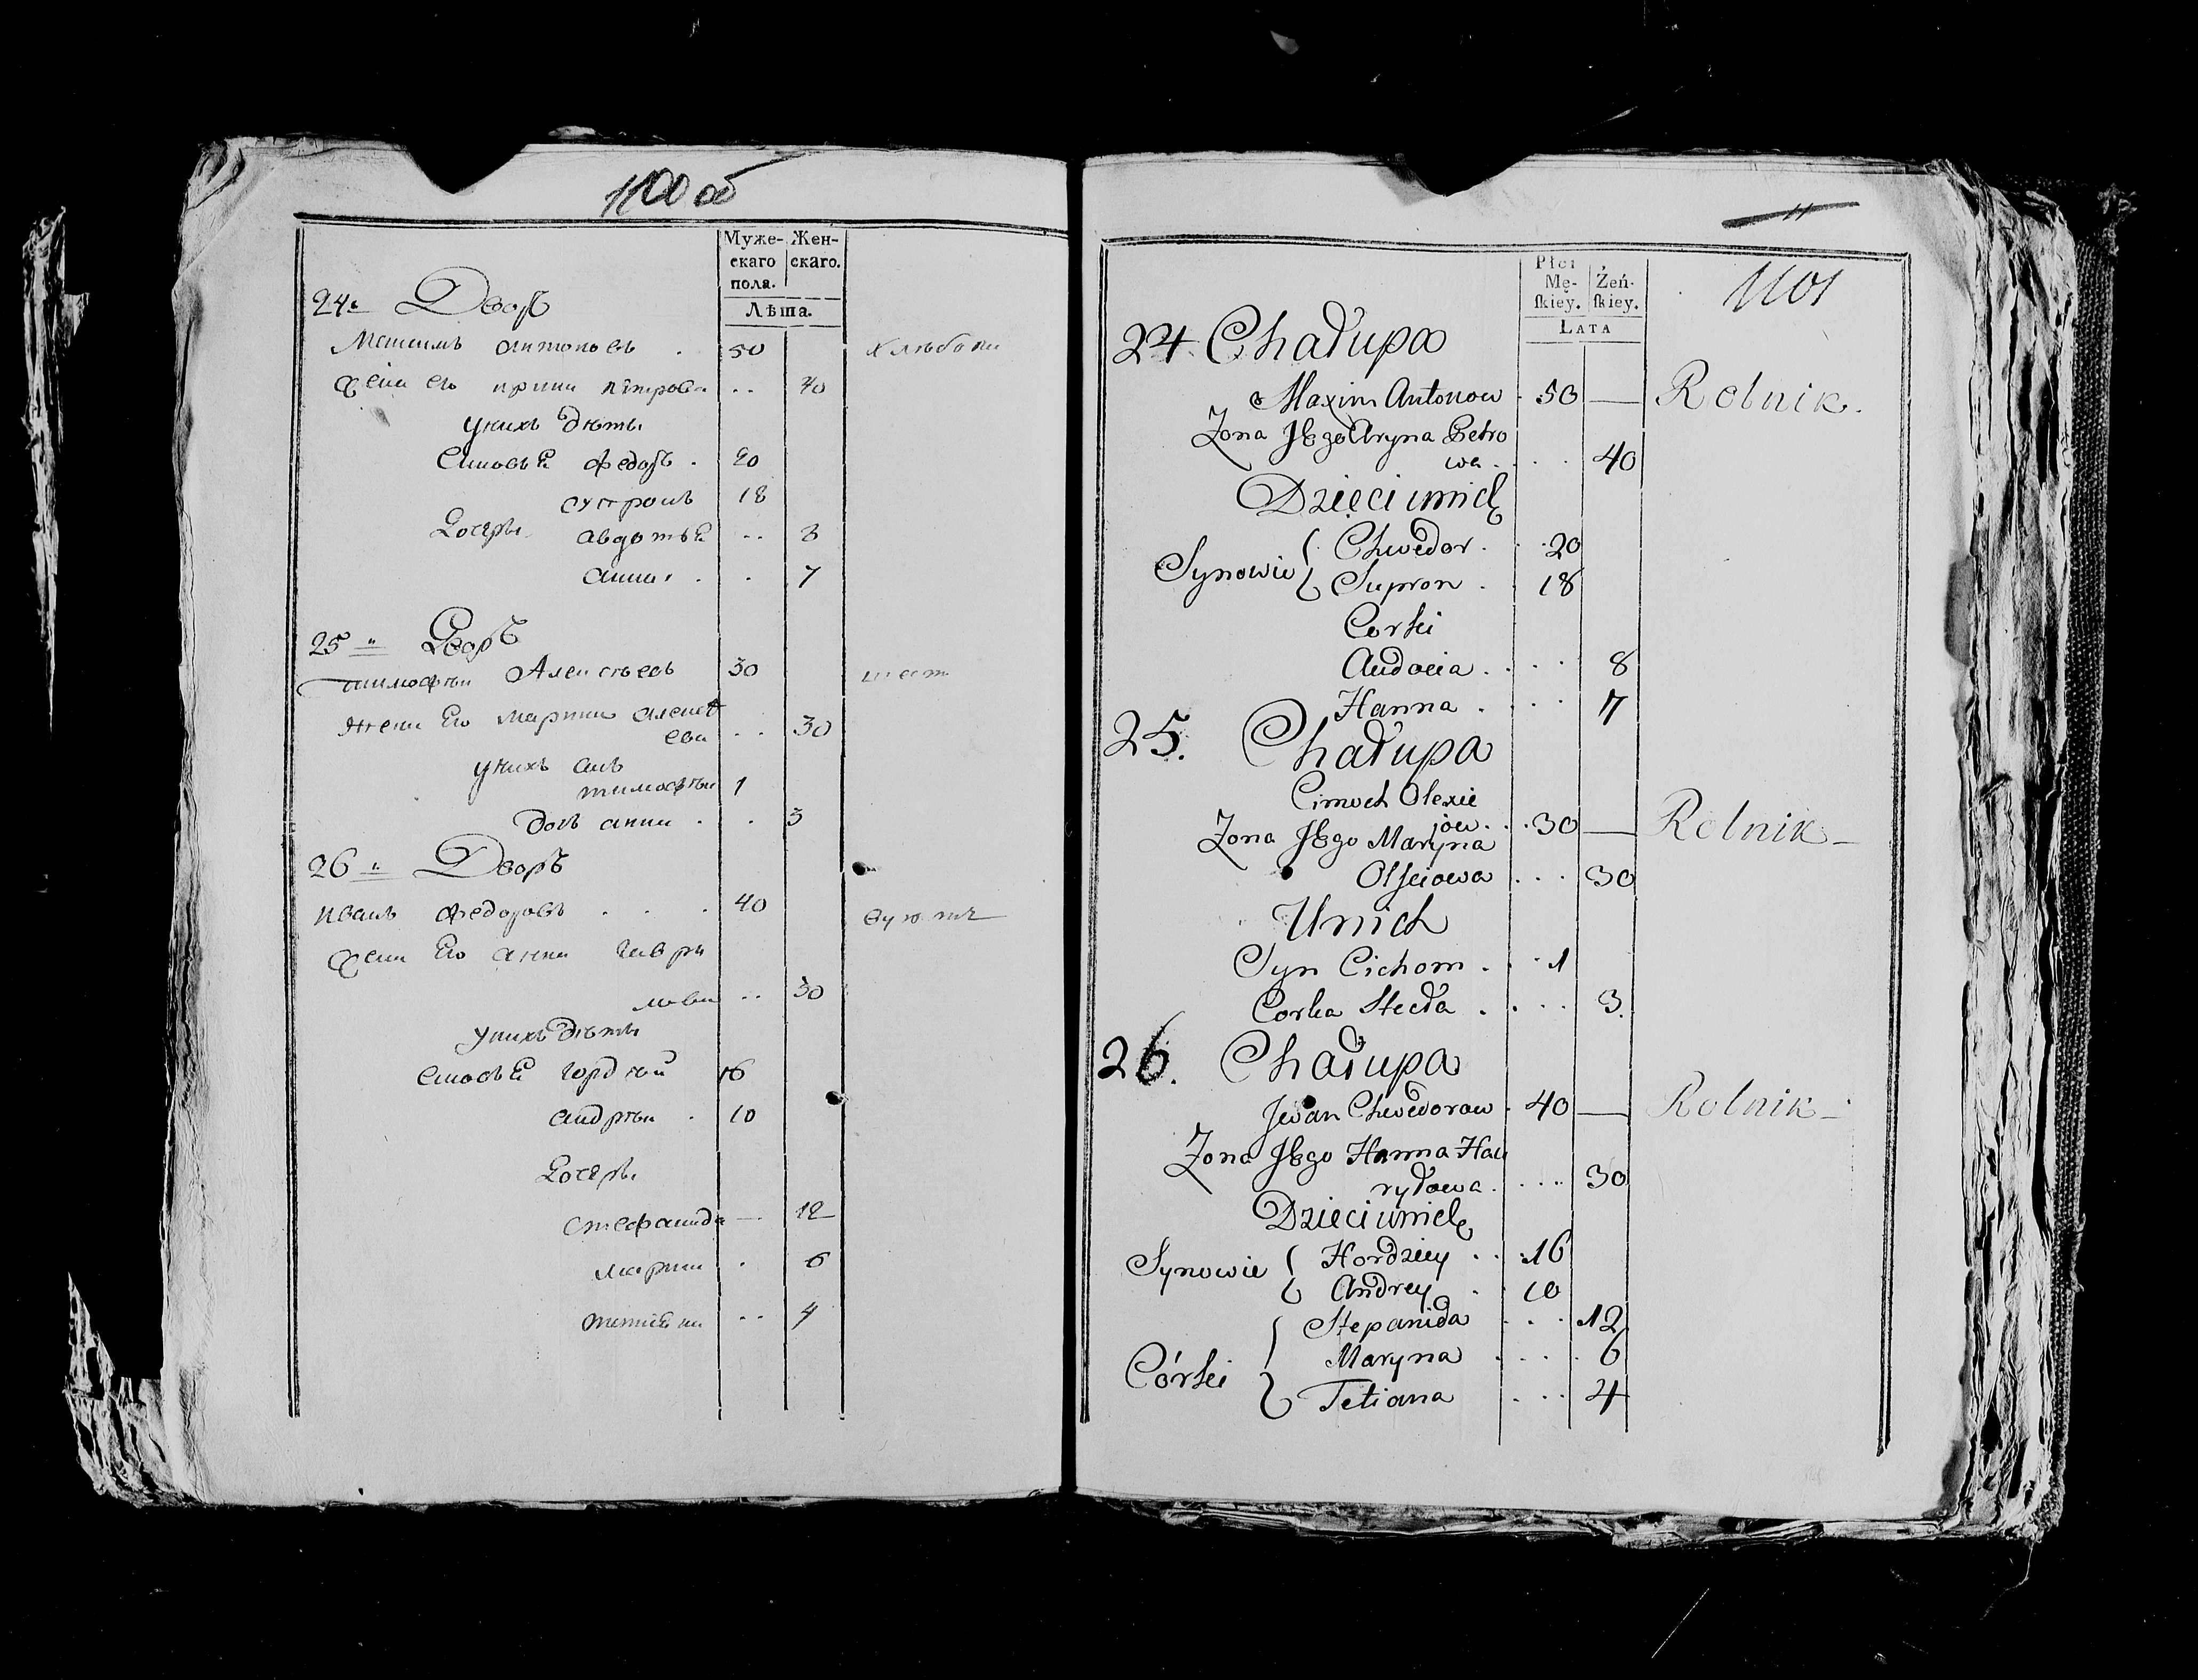 1100 об
Муже- Жен-
скаго скаго.
пола.
Лѣта.
24. Дворъ
Максимъ Антоновъ . 50 Хлѣбопа
Жена его Ирина Пѣтрова .. 40
у нихъ дѣти
Сыновья Федоръ . 20
Супронъ 18
Дочери Авдотья .. 8
Анна . . . 7
25 " Дворъ
Тимофѣй Алексѣевъ 30
Жена Его Марина Алексѣ
ева .. 30
у нихъ сынъ
Тимофѣй 1
дочь Анна . . 3
26 " Дворъ
Иванъ Федоровъ . . . 40
Жена Его Анна Гаври
лова .. 30
у нихъ дѣти
Сыновья Гордѣй 16
Андрѣй . 10
Дочери
Стефанида — 12
Марина . 6
Татіяна .. 4
11
1101
Płci
Mę- Żeń-
skiey. skiey.
Lata
24 Chałupa
Maxim Antonow . 50 — Rolnik.
Zona Jego Aryna Petro
wa . . . . 40
Dzieci unich
Synowie { Chwedor . . . 20
Supron . . 18
Corki
Audocia . . . . 8
Hanna . . . . 7
25. Chałupa
Cimoch Olexie
jow . . . 30 — Rolnik —
Zona Jego Maryna
Olxiejowa . . . 30
Unich
Syn Cichom . . . 1
Corka Stecka . . . . 3.
26. Chałupa
Jwan Chwedorow . 40 — Rolnik —
Zona Jego Hanna Hau
ryłowa . . . . 30
Dzieci unich
Synowie { Hordziey . . . 16
Andrey . . 10
Stepanida . . . 12
Córki { Maryna . . . . 6
Tetiana . . . 4